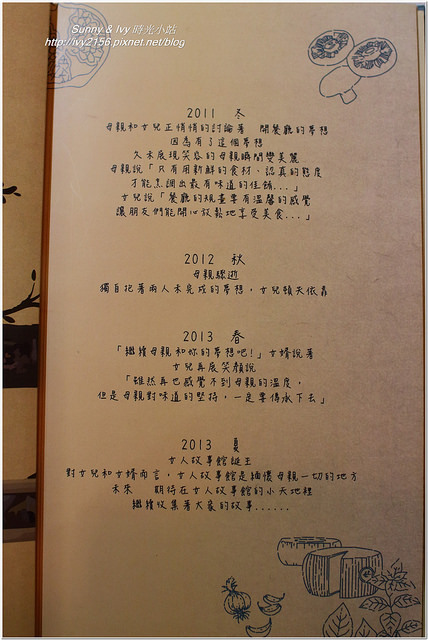 Sunny & Ivy 時光小站
http://ivy2156.pixnet.net/blog
2011 冬
母親和女兒正悄悄的討論著 開餐廳的夢想
因為有了這個夢想
久未展現笑容的母親瞬間變美麗
母親說「只有用新鮮的食材、認真的態度
才能烹調出最有味道的佳餚...」
女兒說「餐廳的規畫要有溫馨的感覺
讓朋友們能開心放鬆地享受美食...」
2012 秋
母親驟逝
獨自抱著兩人未完成的夢想，女兒頓失依靠
2013 春
「繼續母親和妳的夢想吧!」女婿說著
女兒再展笑顏說
「雖然再也感覺不到母親的溫度，
但是母親對味道的堅持，一定要傳承下去」
2013 夏
女人故事館誕生
對女兒和女婿而言，女人故事館是緬懷母親一切的地方
未來 期待在女人故事館的小天地裡
繼續收集著大家的故事......